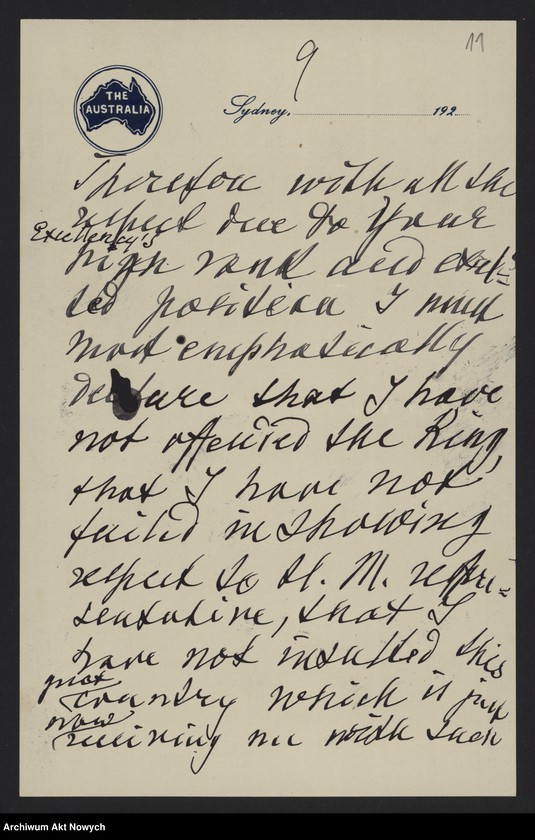 11
9
THE
AUSTRALIA
Sydney, 192
Therefore with all the
respect due to Your
Excellency's
high rank and exal-
ted position I must
most emphatically
declare that I have
not offended the King,
that I have not
failed in showing
respect to H. M. repre-
sentative, that I
have not insulted this
just
country which is just
now
receiving me with such
Archiwum Akt Nowych